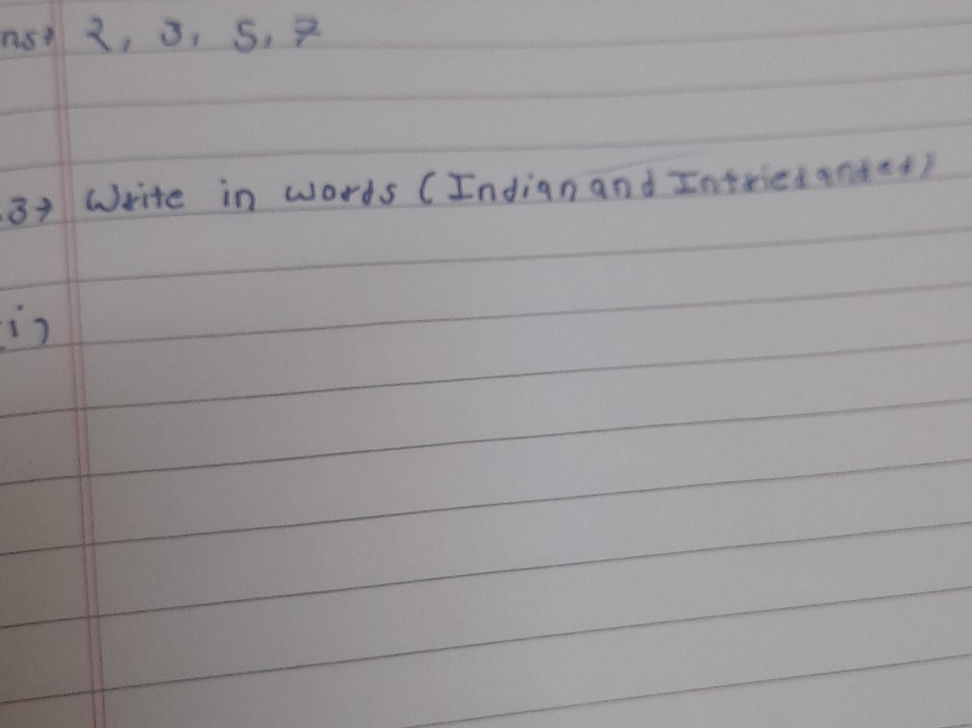 ns→ 2, 3, 5, 7
3→ Write in words (Indian and
i)